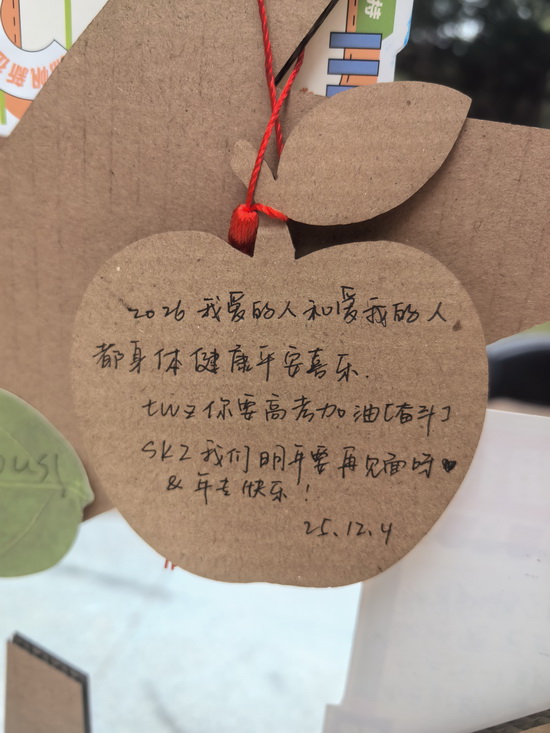 2026 我爱的人和爱我的人
都身体健康平安喜乐.
twz你要高考加油[奋斗]
SKZ 我们明年要再见面呀♥
& 年年快乐!
25.12.4